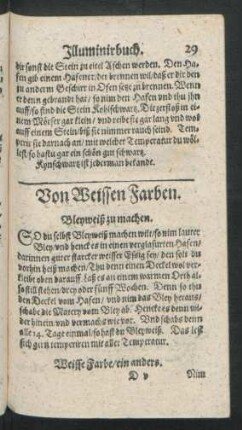 Illuminirbuch. 29
dir sonst die Stein zu eitel Aschen werden. Den Ha-
fen gib einem Hafener/der brennen wil/daß er dir den
zu anderm Geschirr in Ofen setz zu brennen. Wenn
er denn gebrandt hat/ so nim den Hafen vnd thu jhn
auff/ so sind die Stein Kohlschwartz. Die zerstoß in ei-
nem Mörser gar klein/ vnd reibe sie gar lang vnd wol
auff einem Stein/biß sie nimmer rauch seind. Tem-
perir sie darnach an/ mit welcher Temperatur du wöl-
lest/ so hastu gar ein schön gut schwartz.
Kynschwartz ist jederman bekandt.
Von Weissen Farben.
Bleyweiß zu machen.
SO du selbst Bleyweiß machen wilt/so nim lauter
Bley/vnd henck es in einen verglasurten Hafen/
darinnen guter starcker weisser Essig sey/ den solt du
vorhin heiß machen/Thu denn einen Deckel wol ver-
kleibt oben darauff/ laß es an einem warmen Orth al-
so still stehen drey oder fünff Wochen. Denn so thu
den Deckel vom Hafen/ vnd nim das Bley herauß/
schabe die Matery vom Bley ab/ Henck es denn wi-
der hinein/ vnd vermachs wie vor. Vnd schabs denn
alle 14. Tage einmal/so hast du Bleyweiß. Das lest
sich gern temperirn mit aller Temperatur.
Weisse Farbe/ein anders.
D v Nim